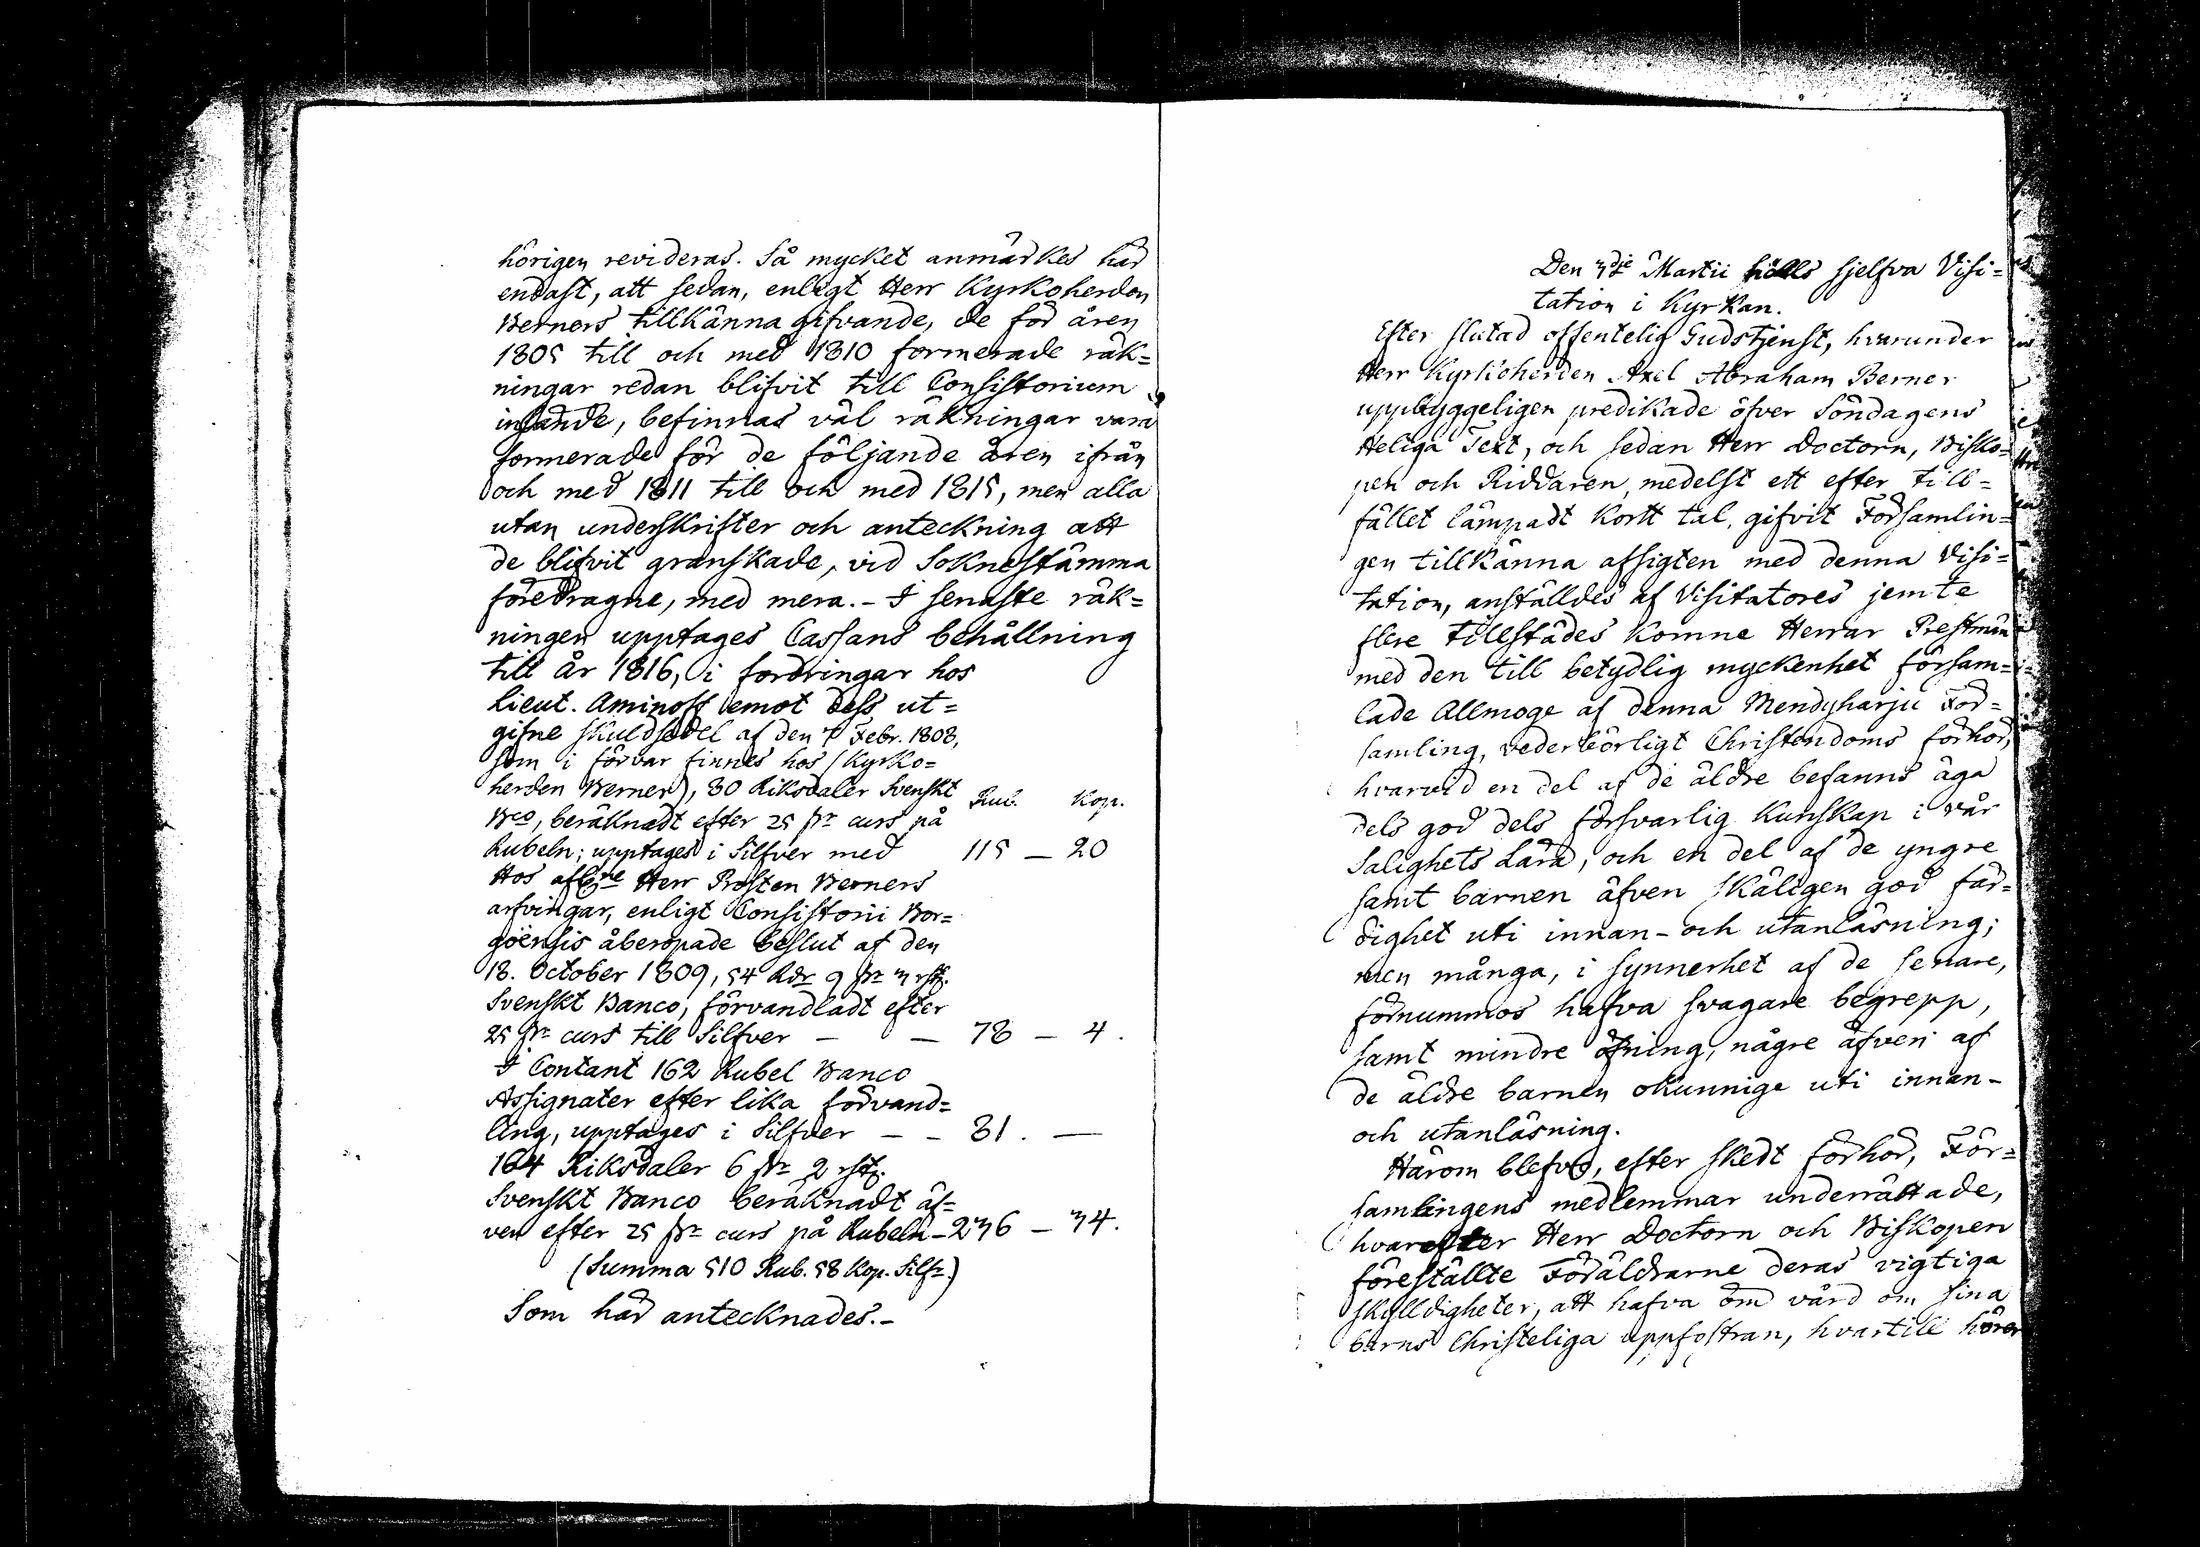 hörigen revideras. Så mycket anmärkes här
endast, att sedan, enligt Herr Kyrkoherden
Berners tillkänna gifvande, de för åren
1805 till och med 1810 formerade räk=
ningar redan blifvit till Consistorium
insände, befinnas väl räkningar vara
formerade för de följande åren ifrån
och med 1811 till och med 1815, men alla
utan underskrifter och anteckning att
de blifvit granskade, vid Soknestämma
föredragne, med mera. - I senaste räk=
ningen upptages Cassans behållning
till år 1816, i fordringar hos
Lieut. Aminoff emot dess ut=
gifne skuldsedel af den Febr. 1808,
som i förvar finnes hos (Kyrko=
herden Berner), 80 Riksdaler Svenskt Rub. Kop.
Bco, beräknadt efter 25 ßr curs på
Rubeln; upptages i Silfver med 115 — 20
Hos aflne Herr Prosten Berners
arfvingar, enligt Consistorii Bor=
göensis åberopade beslut af den
18. October 1809, 54 Rdr 9 ßr 3 rst.
Svenskt Banco, förvandladt efter
25 ßr curs till Silfver — — 78 — 4.
I Contant 162 Rubel Banco
Assignater efter lika förvand=
ling, upptages i Silfver — - 81. —
164 Riksdaler 6 ßr 2 rst.
Svenskt Banco beräknadt äf=
ven efter 25 ßr curs på Rubeln - 236 — 34.
(Summa 510 Rub. 58 Kop. Silfr.)
Som här antecknades. -
Den 3dje Martii hölls sjelfva Visi=
tation i Kyrkan.
Efter slutad offentelig Gudstjenst, hvarunder
Herr Kyrkoherden Axel Abraham Berner
uppbyggeligen predikade öfver Söndagens
Heliga Text, och sedan Herr Doctorn, Bisko=
pen och Riddaren, medelst ett efter till=
fället lämpadt kort tal, gifvit Församlin=
gen tillkänna afsigten med denna Visi=
tation, anställdes af Visitatores jemte
flere tillstädes komne Herrar Prestmän
med den till betydlig myckenhet försam=
lade Allmoge af denna Mendyharju För=
samling, vederbörligt Christendoms förhör,
hvarvid en del af de äldre befanns äga
dels god dels försvarlig Kunskap i vår
Salighets Lära, och en del af de yngre
samt barnen äfven skäligen god fär=
dighet uti innan- och utanläsning;
men många, i synnerhet af de senare,
förnummos hafva svagare begrepp,
samt mindre öfning, någre äfven af
de äldre barnen okunnige uti innan-
och utanläsning.
Härom blefvo, efter skedt förhör, För=
samlingens medlemmar underrättade,
hvarefter Herr Doctorn och Biskopen
föreställte Föräldrarne deras vigtiga
skylldigheter, att hafva öm vård om sina
barns Christeliga uppfostran, hvartill hörer